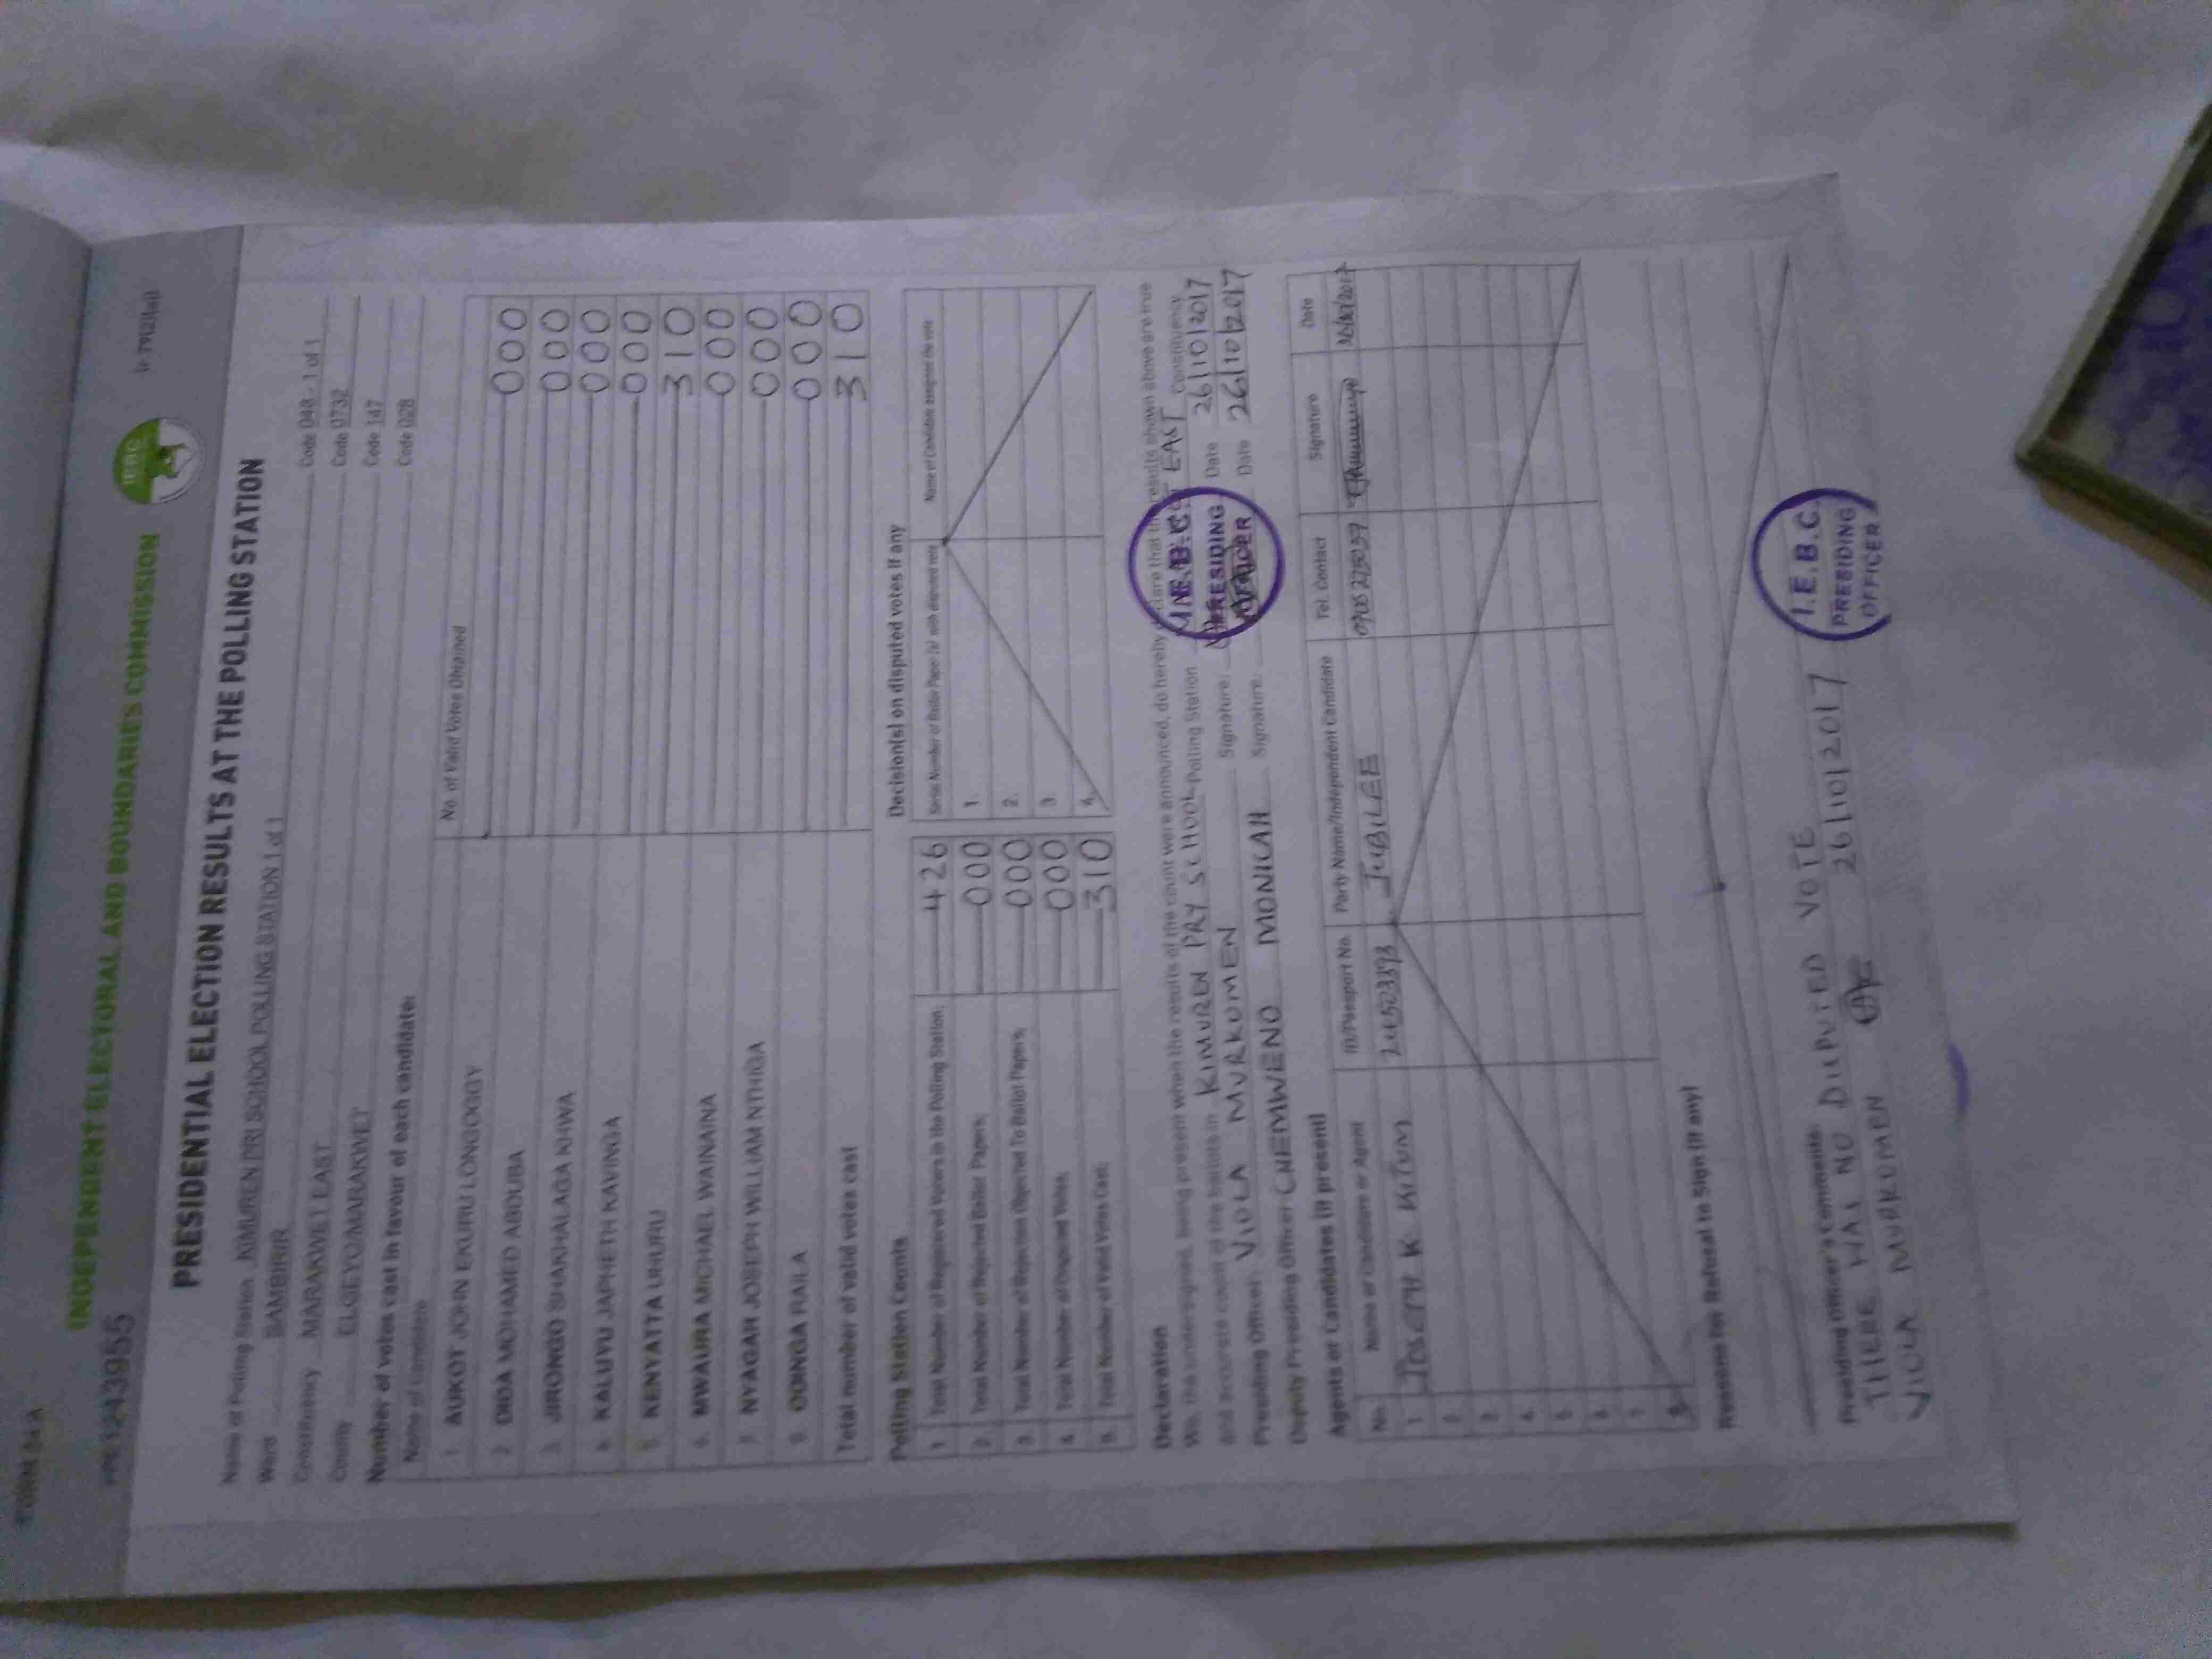 FORM 34 A
INDEPENDENT ELECTORAL AND BOUNDARIES COMMISSION
IEBC
PRESIDENTIAL ELECTION RESULTS AT THE POLLING STATION
Name of Polling Station KIMUREN PRI SCHOOL POLLING STATION 1 of 1 Code 048 - 1 of 1
Ward SAMBIRIR Code 0732
Constituency MARAKWET EAST Code 147
County ELGEYO/MARAKWET Code 028
Number of votes cast in favour of each candidate:
Name of Candidate No. of Valid Votes Obtained
1 AUKOT JOHN EKURU LONGOGGY 000
2 DIDA MOHAMED ABDUBA 000
3 JIRONGO SHAKHALAGA KHWA 000
4 KALUYU JAPHETH KAVINGA 000
5 KENYATTA UHURU 310
6 MWAURA MICHAEL WAINAINA 000
7 NYAGAH JOSEPH WILLIAM NTHIGA 000
8 ODINGA RAILA 000
Total number of valid votes cast 310
Polling Station Counts
1 Total Number of Registered Voters in the Polling Station 426
2. Total Number of Rejected Ballot Papers 000
3. Total Number of Rejection Objected To Ballot Papers 000
4 Total Number of Disputed Votes 000
5. Total Number of Valid Votes Cast 310
Decision(s) on disputed votes if any
Serial Number of Ballot Paper (s) with disputed vote Name of Candidate assigned the vote
1.
2.
3.
4.
Declaration
We, the undersigned, being present when the results of the count were announced, do hereby declare that the results shown above are true
and accurate count of the ballots in KIMUREN PRY SCHOOL Polling Station EAST Constituency
Presiding Officer VIOLA MURKOMEN Signature: Date 26/10/2017
Deputy Presiding Officer CHEMWENO MONICAH Signature: Date 26/10/2017
I.E.B.C.
PRESIDING
OFFICER
Agents of Candidates (if present)
No. Name of Candidate or Agent ID/Passport No. Party Name/Independent Candidate Tel. Contact Signature Date
1 JOSEPH K KITUM 24523373 JUBILEE 26/10/2017
2
3
4
5
6
7
8
Reasons for Refusal to Sign (if any)
Presiding Officer's Comments:
THERE WAS NO DISPUTED VOTE
VIOLA MURKOMEN 26/10/2017
I.E.B.C.
PRESIDING
OFFICER